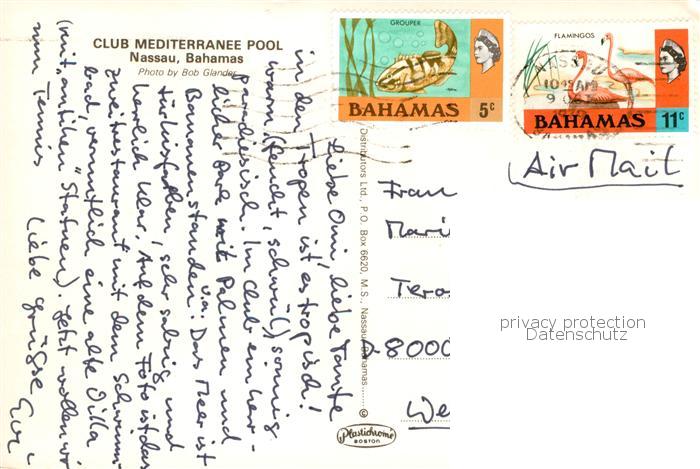 CLUB MEDITERRANEE POOL
Nassau, Bahamas
Photo by Bob Glander
GROUPER
BAHAMAS 5c
FLAMINGOS
BAHAMAS 11c
NASSAU
1045 AM
9
Air Mail
Liebe Omi, liebe Tante
in den Tropen ist es tropisch!
warm (feucht, schwül), sonnig -
paradiesisch. Im Club ein herr-
licher Park mit Palmen und
Bananenstauden u.a. Das Meer ist
türkisfarben, sehr salzig und
herrlich klar. Auf dem Foto ist das
Zweitrestaurant mit dem Schwimm-
bad, vermutlich eine alte Villa
(mit "antiken" Statuen). Jetzt wollen wir
zum Tennis
Liebe Grüsse Eure
Distributors Ltd., P.O. Box 6620, M.S., Nassau, Bahamas
©
Plastichrome
BOSTON
Frau
Mari
Tera
D-8000
We
privacy protection
Datenschutz